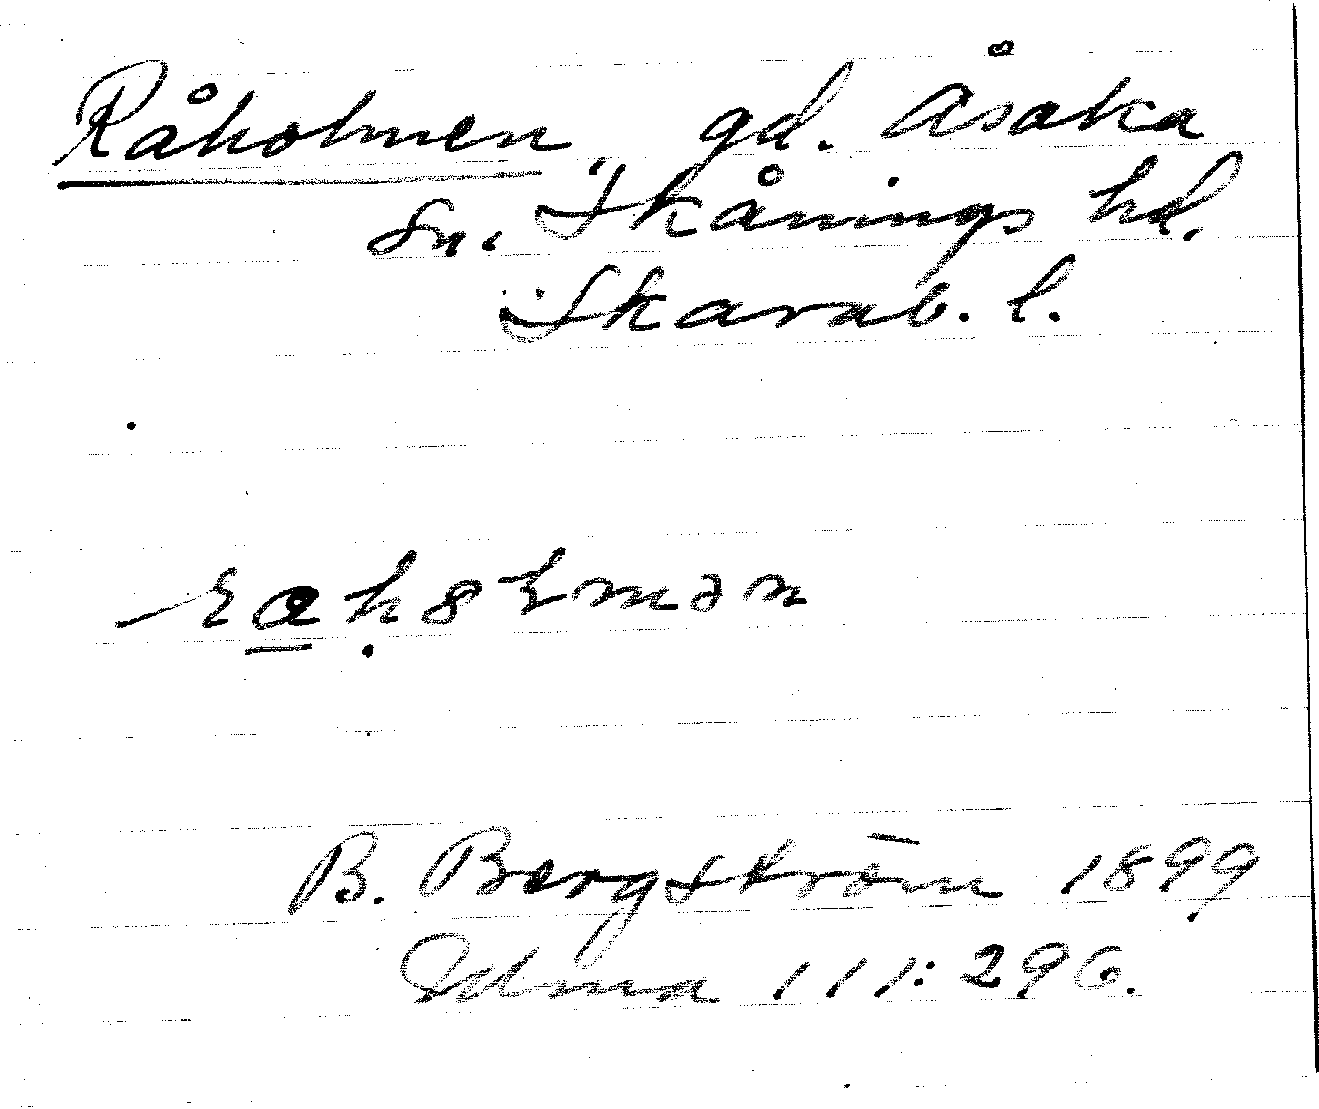 Råholmen, gd. Åsaka
sn. Skånings hd.
Skarab. l.
B. Bergström 1899
Udma 111:296.